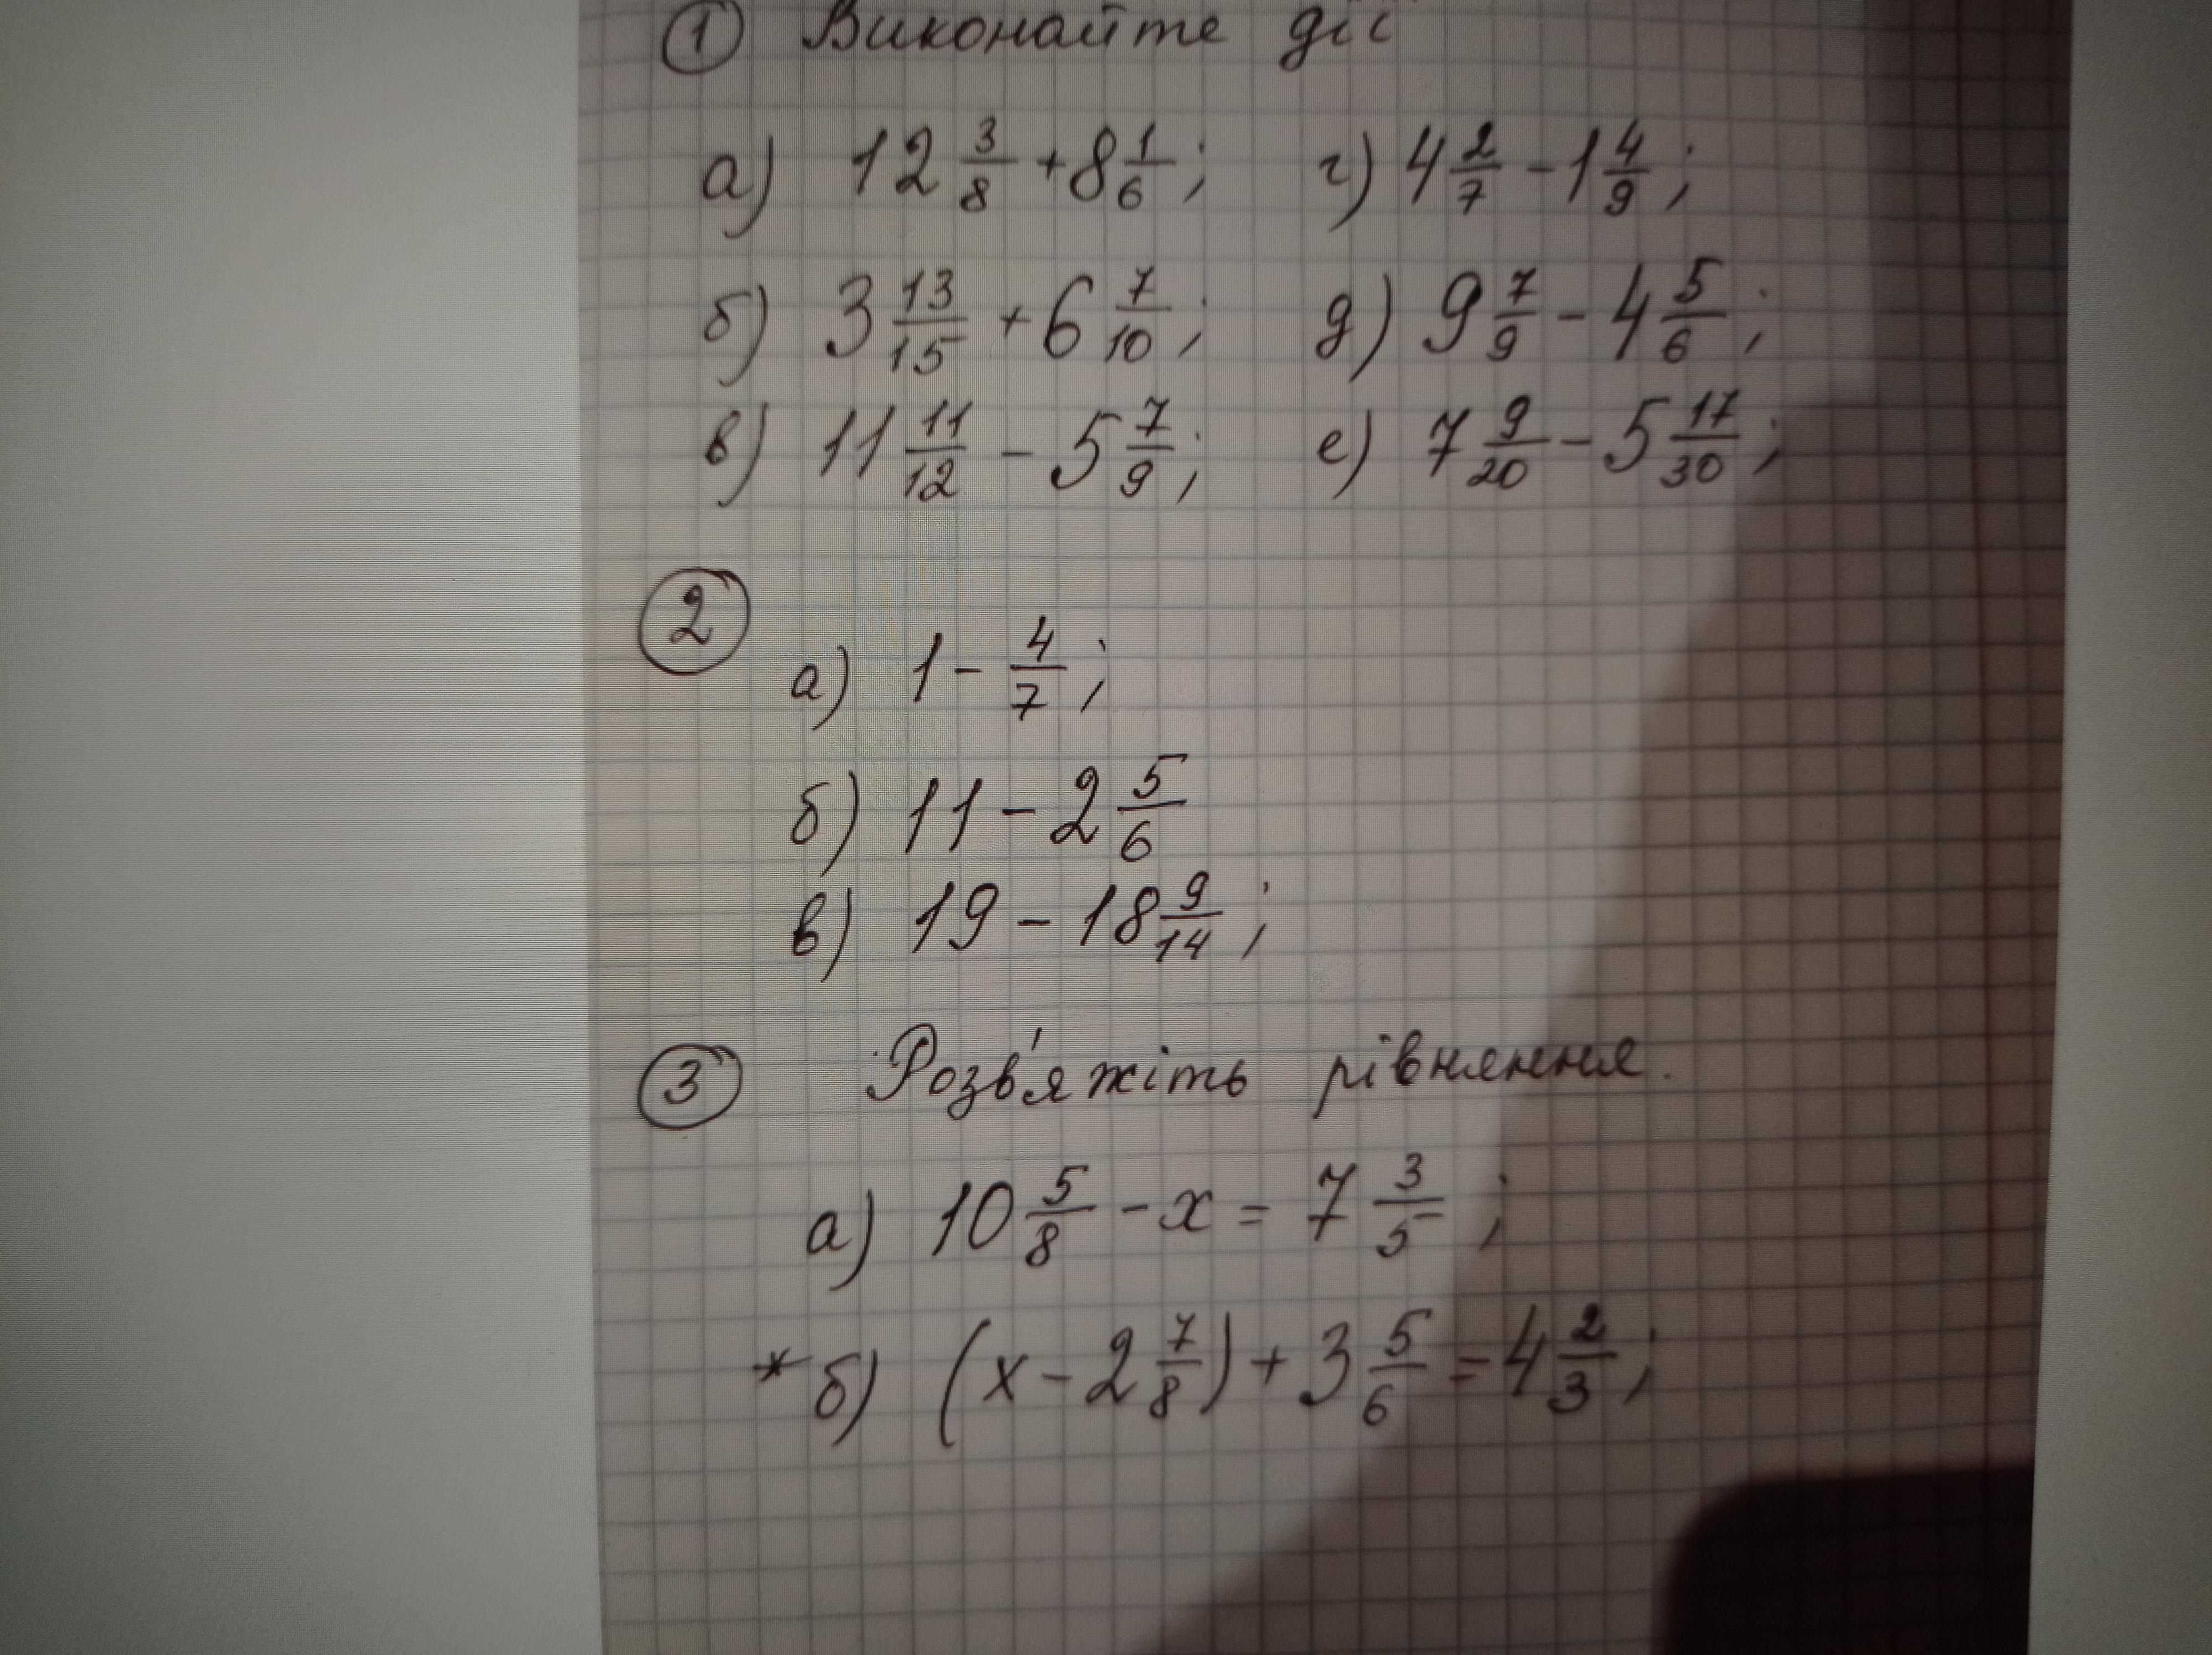 1 Виконайте дії
а) 12 3/8 + 8 1/6; г) 4 2/7 - 1 4/9;
б) 3 13/15 + 6 7/10; д) 9 7/9 - 4 5/6;
в) 11 11/12 - 5 7/9; е) 7 9/20 - 5 17/30;
2
а) 1 - 4/7;
б) 11 - 2 5/6
в) 19 - 18 9/14;
3 Розв'яжіть рівняння.
а) 10 5/8 - x = 7 3/5;
* б) (x - 2 7/8) + 3 5/6 = 4 2/3;